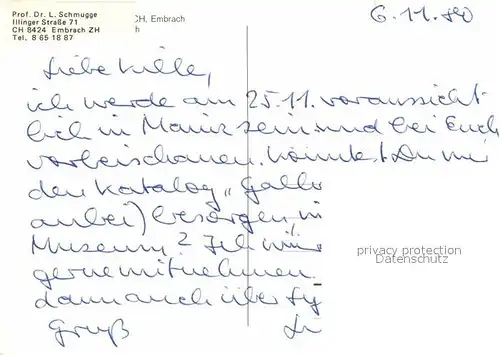 Prof. Dr. L. Schmugge
Illinger Straße 71
CH 8424 Embrach ZH
Tel. 8 65 18 87
CH, Embrach
6.11.80
Liebe
ich werde am 25.11. voraussicht-
lich in Mainz sein und bei Euch
vorbeischauen. Könntest Du mir
den Katalog „Gallo
anbei) besorgen im
Museum? Ich
gerne mitnehmen.
dann auch über
Gruß
privacy protection
Datenschutz